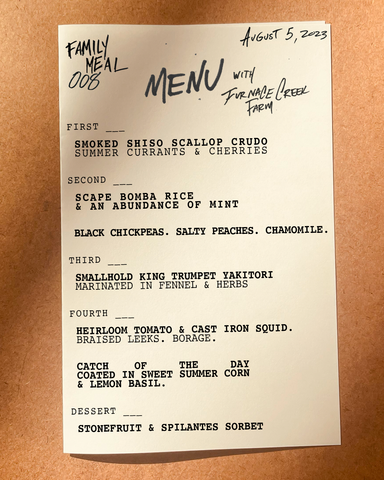 FAMILY
MEAL
008
AUGUST 5, 2023
MENU WITH
FURNACE CREEK
FARM
FIRST ___
SMOKED SHISO SCALLOP CRUDO
SUMMER CURRANTS & CHERRIES
SECOND ___
SCAPE BOMBA RICE
& AN ABUNDANCE OF MINT
BLACK CHICKPEAS. SALTY PEACHES. CHAMOMILE.
THIRD ___
SMALLHOLD KING TRUMPET YAKITORI
MARINATED IN FENNEL & HERBS
FOURTH ___
HEIRLOOM TOMATO & CAST IRON SQUID.
BRAISED LEEKS. BORAGE.
CATCH OF THE DAY
COATED IN SWEET SUMMER CORN
& LEMON BASIL.
DESSERT ___
STONEFRUIT & SPILANTES SORBET